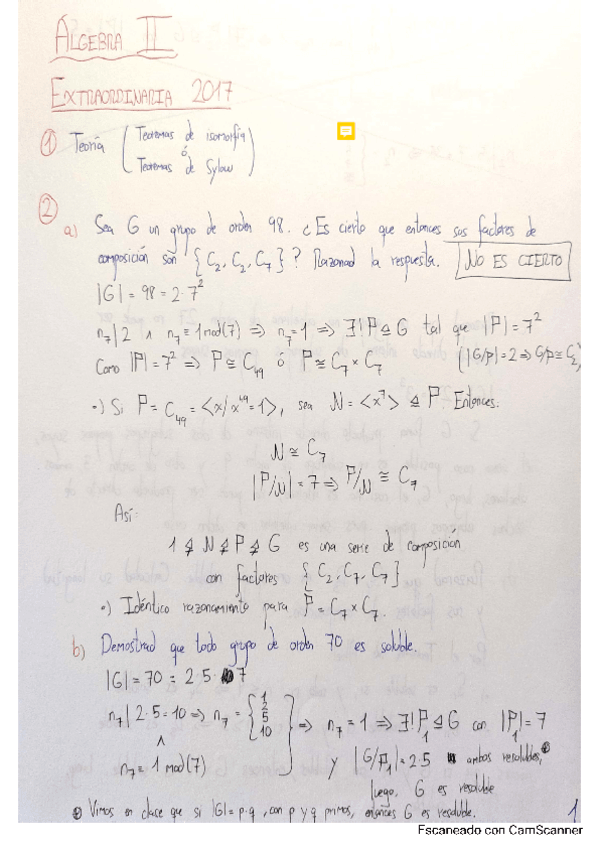 ÁLGEBRA II
EXTRAORDINARIA 2017
① Teoría ( Teoremas de isomorfía
ó
Teoremas de Sylow )
②
a) Sea G un grupo de orden 98. ¿Es cierto que entonces sus factores de
composición son {C₂, C₂, C₇}? Razonad la respuesta. NO ES CIERTO
|G| = 98 = 2·7²
n₇|2 ∧ n₇ = 1 mod(7) ⇒ n₇ = 1 ⇒ ∃! P ⊴ G tal que |P| = 7²
Como |P| = 7² ⇒ P ≅ C₄₉ ó P ≅ C₇ × C₇ (|G/P| = 2 ⇒ G/P ≅ C₂)
·) Si P = C₄₉ = <x/x⁴⁹=1>, sea N = <x⁷> ⊴ P. Entonces:
N ≅ C₇
|P/N| = 7 ⇒ P/N ≅ C₇
Así:
1 ⋬ N ⋬ P ⋬ G es una serie de composición
con factores {C₂, C₇, C₇}
·) Idéntico razonamiento para P = C₇ × C₇.
b) Demostrad que todo grupo de orden 70 es soluble.
|G| = 70 = 2·5·7
n₇|2·5=10 ⇒ n₇ = { 1 2 5 10 } ⇒ n₇ = 1 ⇒ ∃! P₁ ⊴ G con |P₁| = 7
∧
n₇ = 1 mod(7) y |G/P₁| = 2·5 ambos resolubles,
luego, G es resoluble
Vimos en clase que si |G| = p·q, con p y q primos, entonces G es resoluble.
1
Escaneado con CamScanner